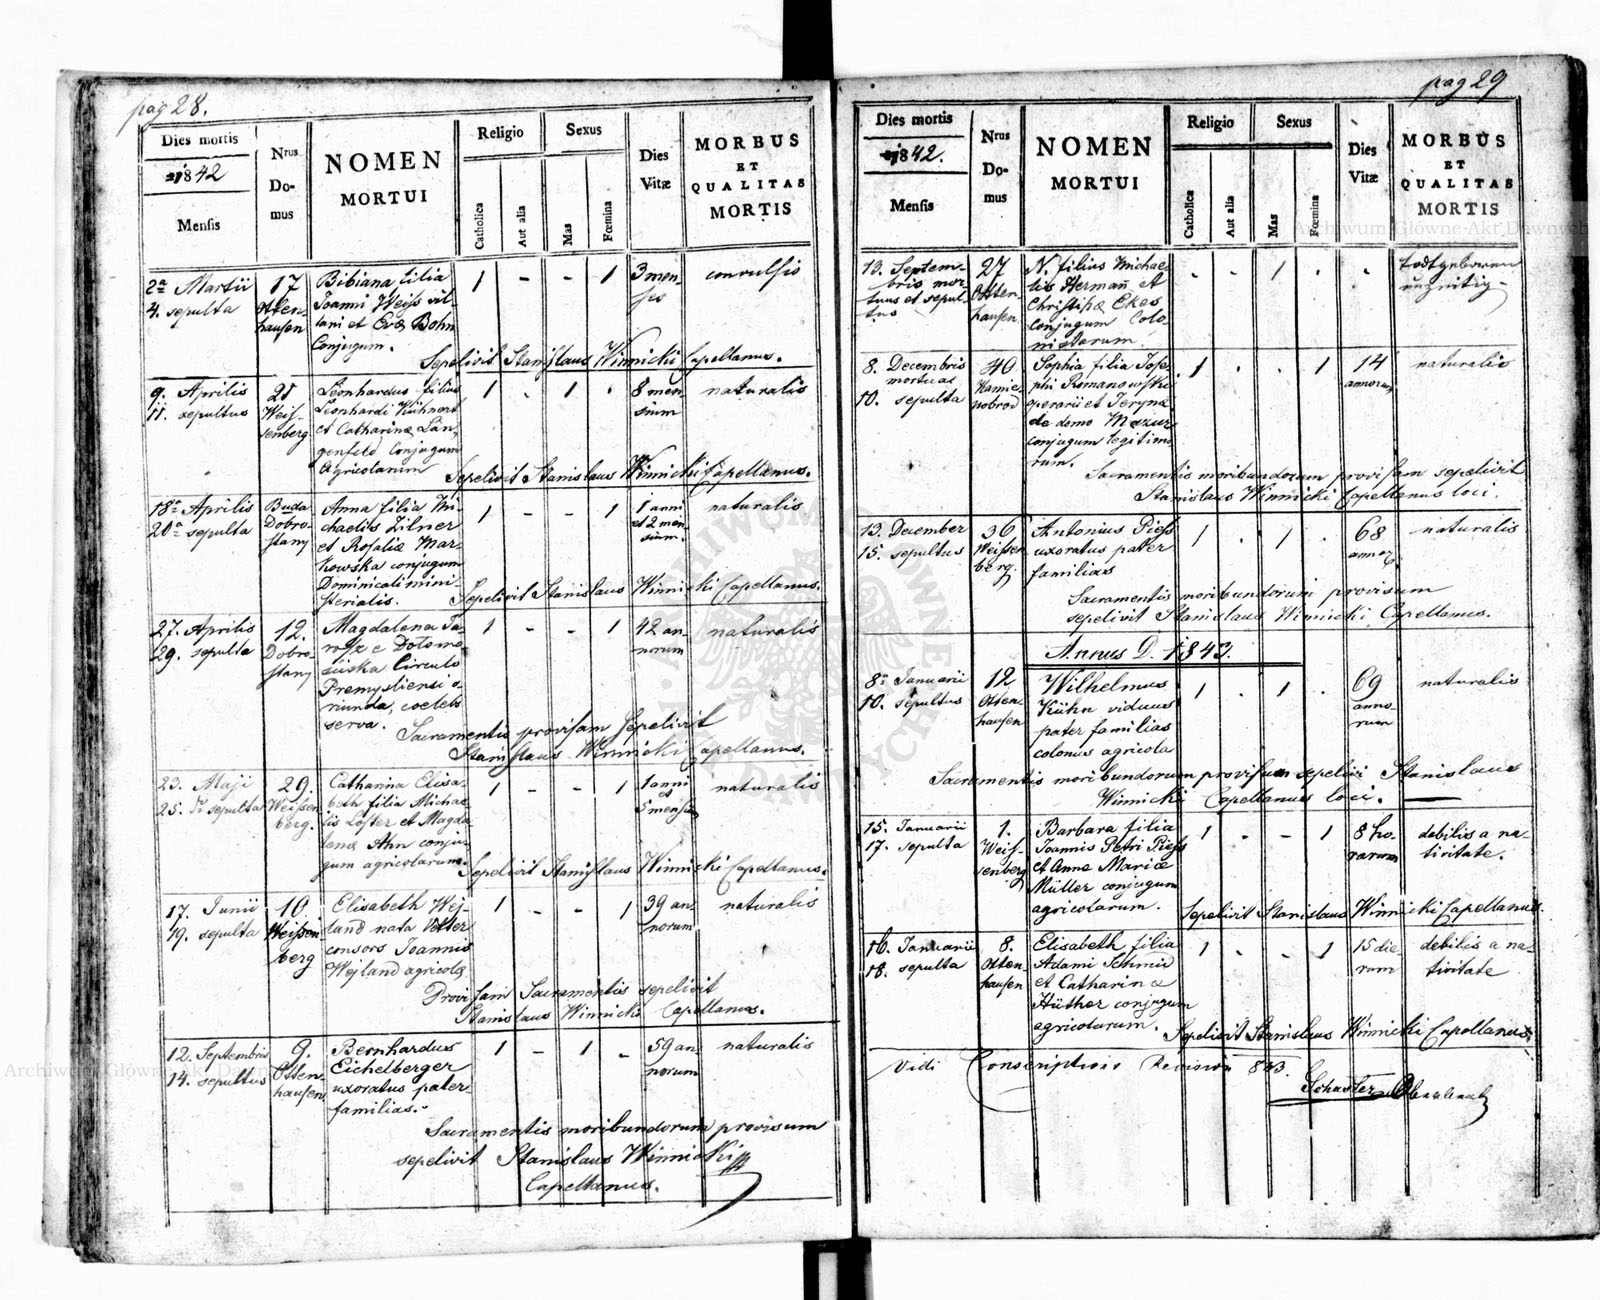 pag 28.
Dies mortis
1842
Mensis
Nrus
Do-
mus
NOMEN
MORTUI
Religio
Catholica
Aut alia
Sexus
Mas
Fœmina
Dies
Vitæ
MORBUS
ET
QUALITAS
MORTIS
2a Martii
4. sepulta
17
Otten-
hausen
Bibiana filia
Joanni Weiss vil-
lani et Evæ Bohn
Conjugum.
1 - - 1
3 men-
ses
convulsis
Sepelivit Stanislaus Winnicki Capellanus.
9. Aprilis
11. sepultus
21
Weis-
senberg
Leonhardus filius
Leonhardi Kühnert
et Catharinæ Län-
genfeld Conjugum
Agricolarum
1 . 1 .
8 men-
sium
naturalis
Sepelivit Stanislaus Winnicki Capellanus.
18a Aprilis
20a sepulta
Buda
Dobro-
stany
Anna filia Mi-
chaelis Zilner
et Rosaliæ Mar-
kowska conjugum
Dominicali mini-
sterialis.
1 - - 1
1 anni
et 2 men-
sium.
naturalis
Sepelivit Stanislaus Winnicki Capellanus.
27. Aprilis
29. sepulta
12.
Dobro-
stany
Magdalena Ja-
e Dolomo-
sciska Circulo
Premysliensi o-
riunda, coelebs
serva.
1 - - 1
42 an-
norum
naturalis
Sacramentis provisam Sepelivit
Stanislaus Winnicki Capellanus.
23. Maji
25. sepulta
29.
Weissen
berg.
Catharina Elisa-
beth filia Michae-
lis Loster et Magda
lenæ Ahn conju-
gum agricolarum.
1 - - 1
1 anni
et
5 mensium
naturalis
Sepelivit Stanislaus Winnicki Capellanus.
17. Junii
19. sepulta
10.
Weissen
berg
Elisabeth Wej-
land nata Vetter
consors Joannis
Wejland agricolæ
1 - - 1
39 an-
norum
naturalis
Provisam Sacramentis sepelivit
Stanislaus Winnicki Capellanus.
12. Septembris
14. sepultus
9.
Otten-
hausen
Bernhardus
Eichelberger
uxoratus pater
familias.
1 - 1 -
59 an-
norum
naturalis
Sacramentis moribundorum provisum
sepelivit Stanislaus Winnicki
Capellanus.
pag 29
Dies mortis
1842.
Mensis
Nrus
Do-
mus
NOMEN
MORTUI
Religio
Catholica
Aut alia
Sexus
Mas
Fœmina
Dies
Vitæ
MORBUS
ET
QUALITAS
MORTIS
13. Septem-
bris mor-
tuus et sepul-
tus
27
Otten-
hausen
N. filius Michae-
lis Hermañ et
Christinæ Ekes
conjugum Colo-
nistarum.
- - 1 . .
todtgeboren
8. Decembris
mortua
10. sepulta
40
Kamie-
nobrod
Sophia filia Jose-
phi Romanowski
operarii et Jerynæ
de domo Mazur
conjugum legitimo
rum.
1 . . 1
14
annorum
naturalis
Sacramentis moribundorum provisam sepelivit
Stanislaus Winnicki Capellanus loci.
13. December
15. sepultus
36
Weissen
berg.
Antonius Piess
uxoratus pater
familias
1 . 1 .
68
annor
naturalis
Sacramentis moribundorum provisum
sepelivit Stanislaus Winnicki Capellanus.
Annus D. 1843.
8a Januarii
10. sepultus
12
Otten-
hausen
Wilhelmus
Kühn viduus
pater familias
colonus agricola
1 . 1 .
69
anno-
rum
naturalis
Sacramentis moribundorum provisum sepelivi Stanislaus
Winnicki Capellanus loci.
15. Januarii
17. sepulta
1.
Weis-
senberg
Barbara filia
Joannis Petri Piess
et Anna Mariæ
Müller conjugum
agricolarum.
1 - - 1
8 ho-
rarum
debilis a na-
tivitate.
Sepelivit Stanislaus Winnicki Capellanus.
16. Januarii
18. sepulta
8.
Otten-
hausen
Elisabeth filia
Adami Schmid
et Catharinæ
Hüther conjugum
agricolarum.
1 - - 1
15 die-
rum
debilis a na-
tivitate
Sepelivit Stanislaus Winnicki Capellanus
Vidi Conscriptions Revision 843.
Archiwum Główne Akt Dawnych
ARCHIWUM GŁÓWNE AKT DAWNYCH
Archiwum Główne Akt Dawnych